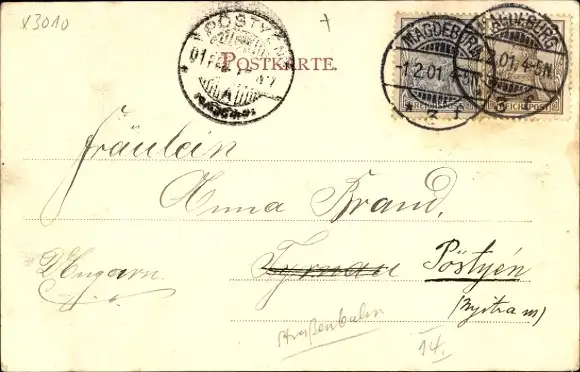 x3010
PÖSTYÉN
01 FEB
POSTKARTE.
MAGDEBURG
1.2.01. 4-5N
REICHSPOST
MAGDEBURG
2.01. 4-5N
REICHSPOST
Fräulein
Anna Brand,
Tyrnau Pöstyén
Ungarn.
(Nyitra m)
Straßenbahn
14.